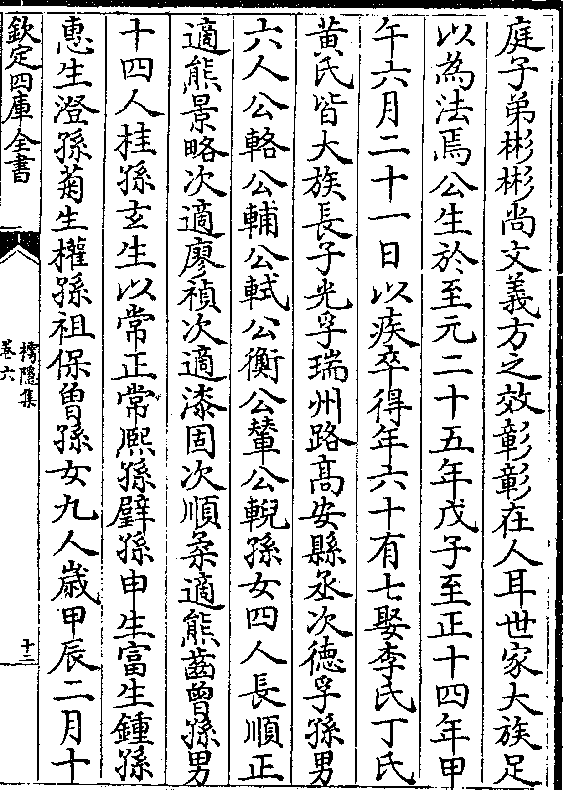 庭子弟彬彬尚文義方之效彰彰在人耳世家大族足
以為法焉公生於至元二十五年戊子至正十四年甲
午六月二十一日以疾卒得年六十有七娶李氏丁氏
黄氏皆大族長子光孚瑞州路髙安縣丞次徳孚孫男
六人公輅公輔公軾公衡公輦公輗孫女四人長順正
適熊景略次適廖禎次適漆固次順柔適熊菑曽孫男
十四人桂孫玄生以常正常熙孫璧孫申生富生鍾孫
惠生澄孫菊生權孫祖保曽孫女九人歲甲辰二月十
欽定四庫全書
樗隠集
卷六
十二